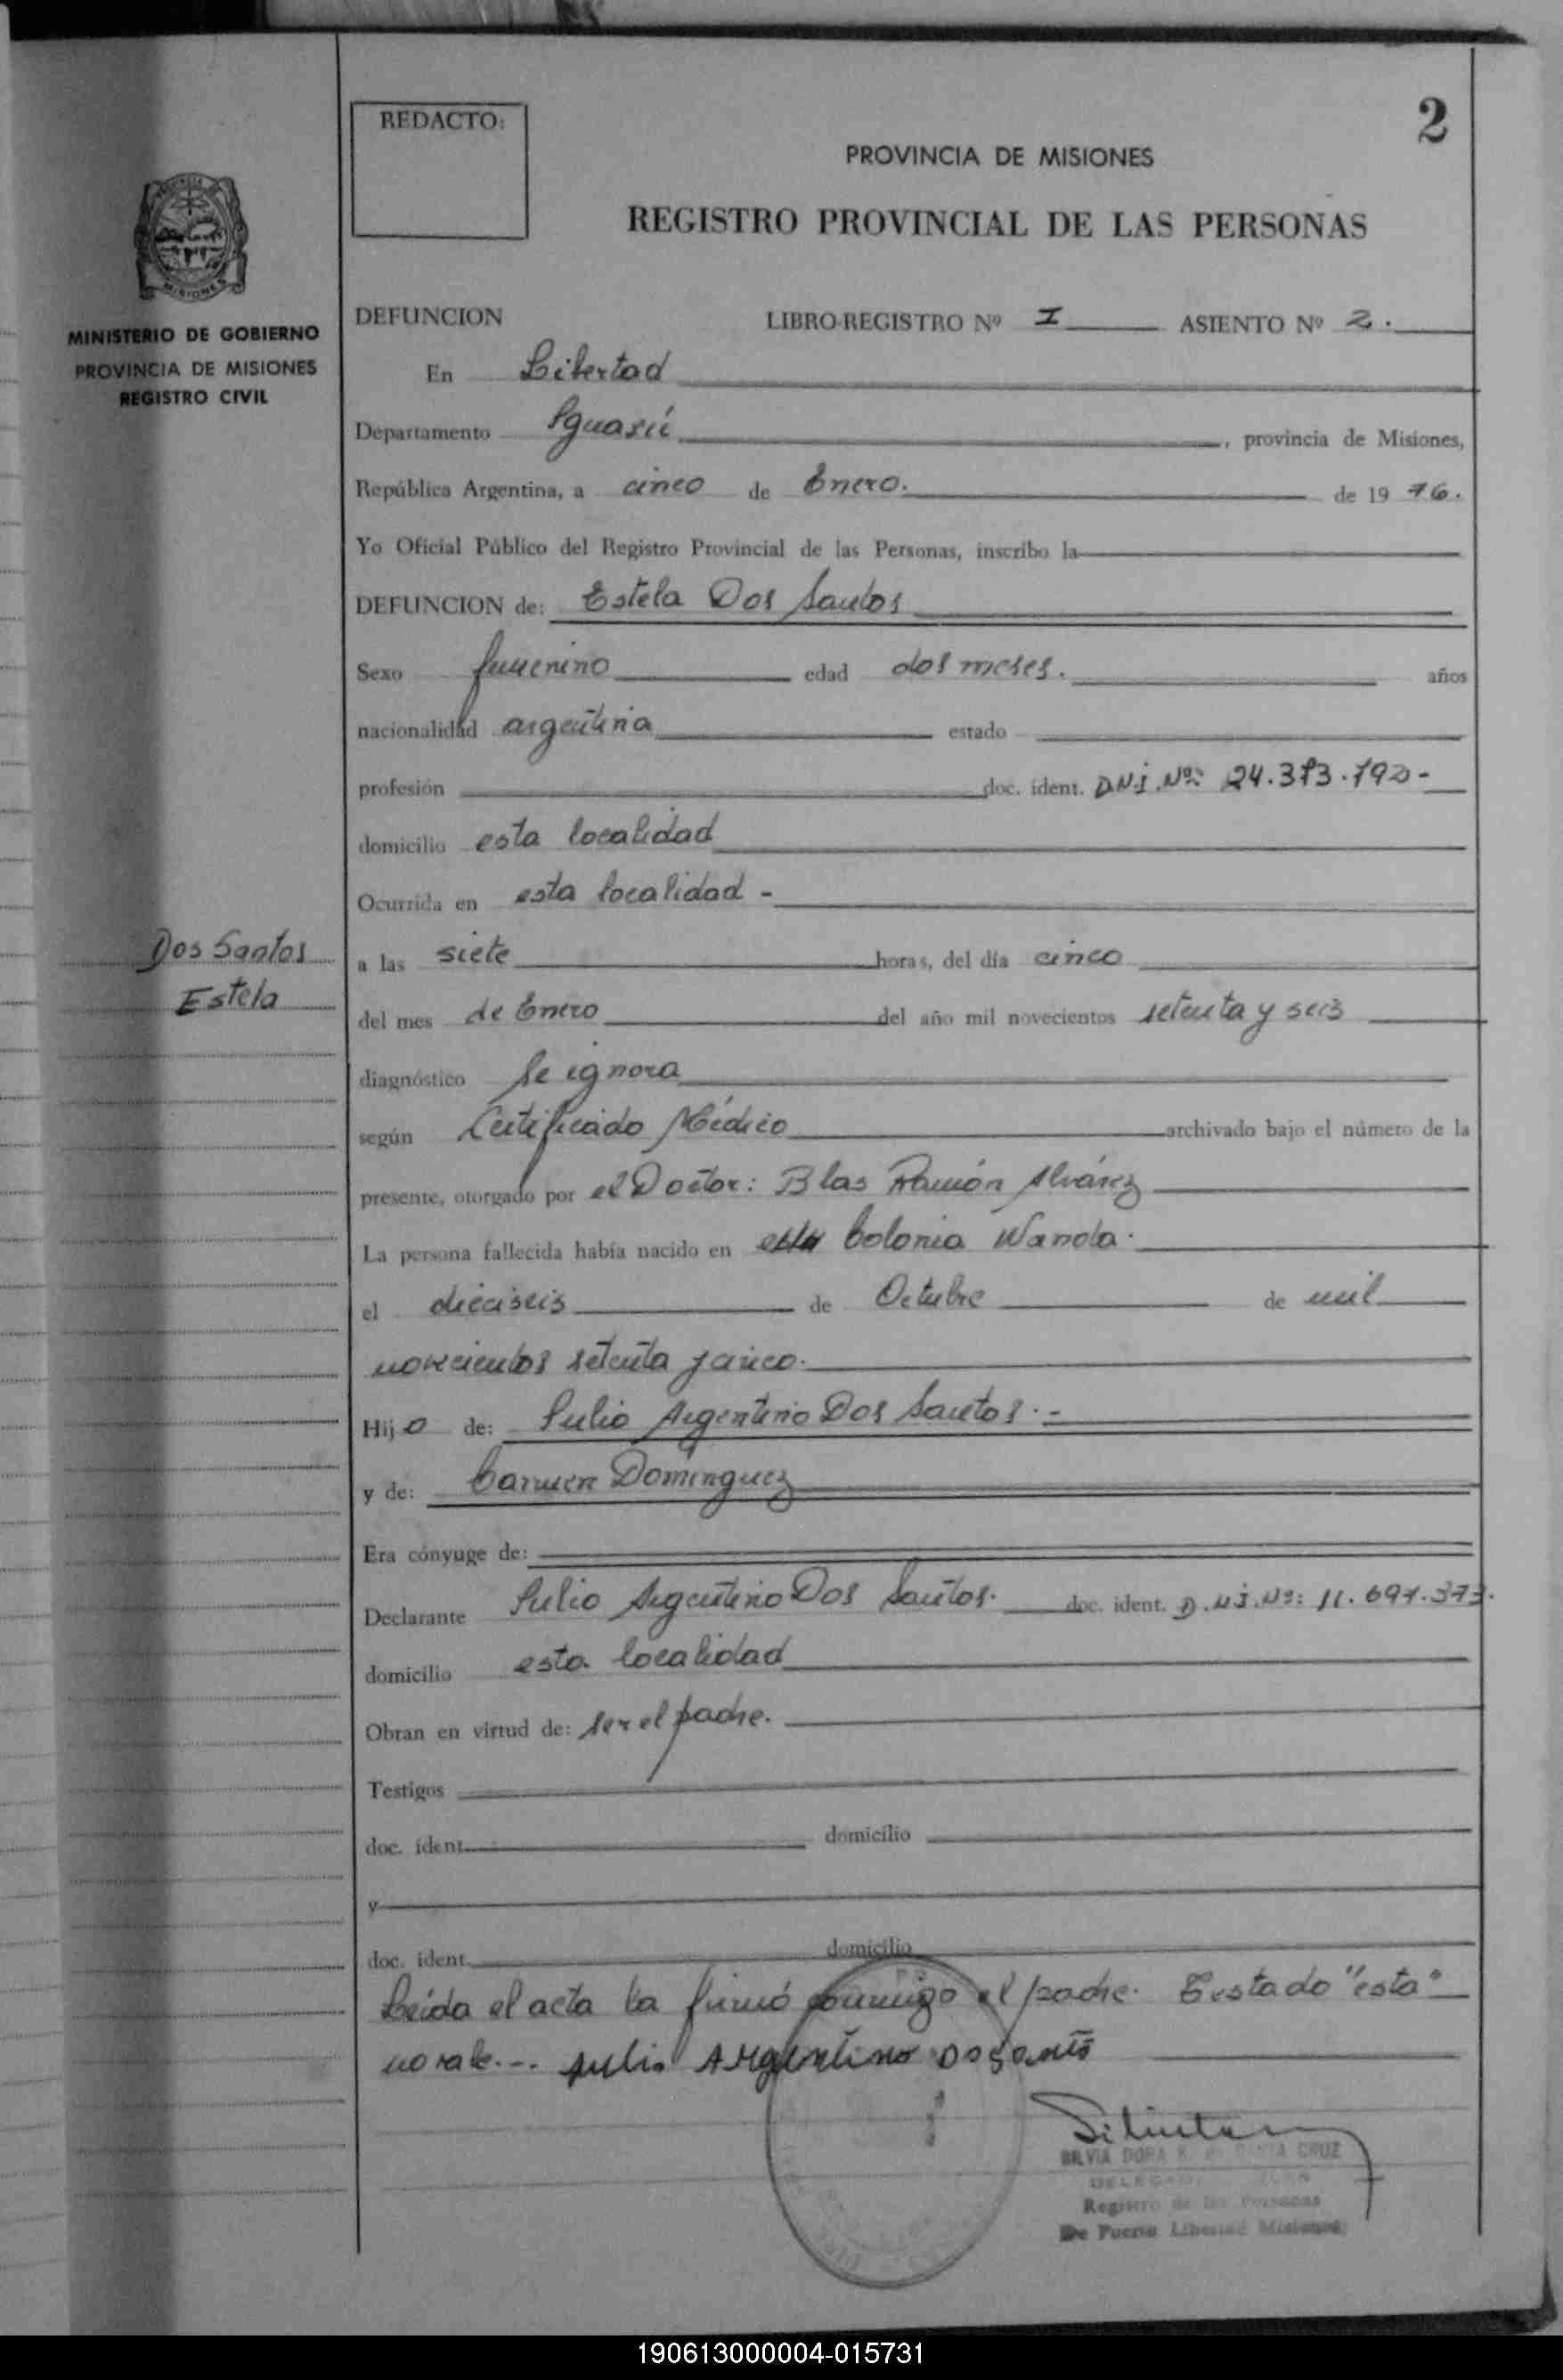 2
REDACTO:
PROVINCIA DE MISIONES
REGISTRO PROVINCIAL DE LAS PERSONAS
MISIONES
MINISTERIO DE GOBIERNO
PROVINCIA DE MISIONES
REGISTRO CIVIL
DEFUNCION LIBRO-REGISTRO Nº I ASIENTO Nº 2.
En Libertad
Departamento Iguasú, provincia de Misiones,
República Argentina, a cinco de Enero. de 19 76.
Yo Oficial Público del Registro Provincial de las Personas, inscribo la
DEFUNCION de: Estela Dos Santos
Sexo femenino edad dos meses. años
nacionalidad argentina estado
profesión doc. ident. D.N.I. Nº: 24.373.792-
domicilio esta localidad
Ocurrida en esta localidad -
Dos Santos
Estela
a las siete horas, del día cinco
del mes de Enero del año mil novecientos setenta y seis
diagnóstico Se ignora
según Certificado Médico archivado bajo el número de la
presente, otorgado por el Doctor: Blas Ramón Alvárez
La persona fallecida había nacido en esta Colonia Wanda.
el dieciseis de Octubre de mil
novecientos setenta y cinco.
Hijo de: Julio Argentino Dos Santos.-
y de: Carmen Dominguez
Era cónyuge de:
Declarante Julio Argentino Dos Santos. doc. ident. D.N.I. Nº: 11.697.373.
domicilio esta localidad
Obran en virtud de: ser el padre.
Testigos
doc. ident. domicilio
y
doc. ident. domicilio
Leída el acta la firmó conmigo el padre. Testado "esta"
no vale.-. Julio Argentino Dosants
SILVIA DORA CRUZ
Registro de las Personas
De Puerto Libertad Misiones
190613000004-015731